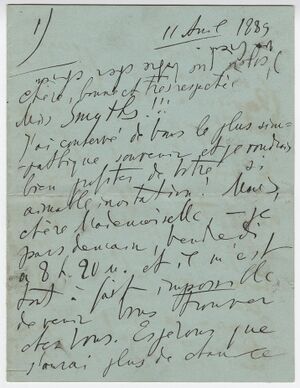 1)
11 Avril 1889
Chère, bonne et très respectée
Miss Smyths!!!
J'ai conservé de Vous le plus sim-
pathique souvenir et je voudrais
bien profiter de Votre si
aimable invitation! Mais,
chère Mademoiselle – je
pars demain, Vendredi
à 8 h. 20 m. et il m'est
tout à fait impossible
de venir Vous trouver
chez Vous. Espérons que
j'aurai plus de chance